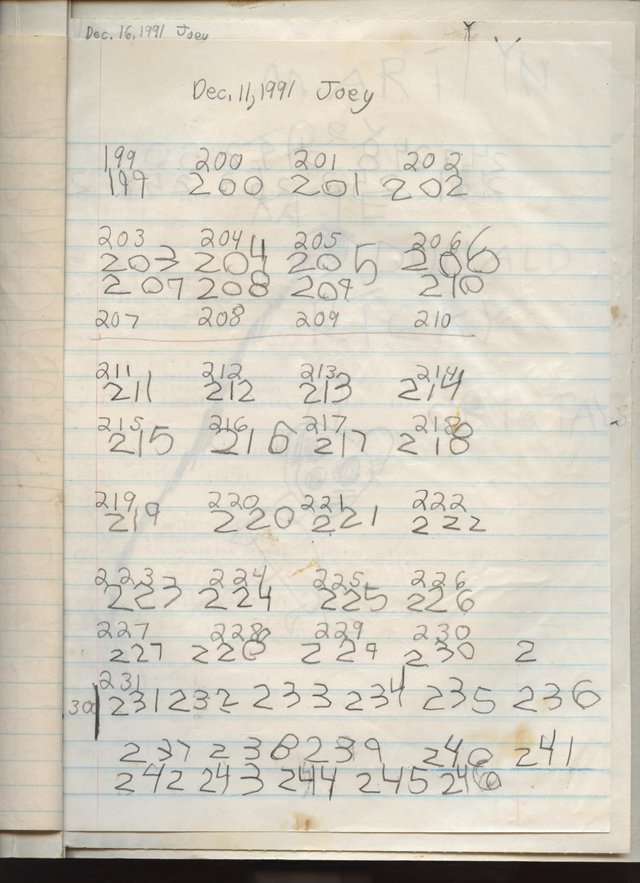 Dec. 16, 1991 Joey
Dec. 11, 1991 Joey
199 200 201 202
199 200 201 202
203 204 205 206
203 204 205 206
207 208 209 210
207 208 209 210
211 212 213 214
211 212 213 214
215 216 217 218
215 216 217 218
219 220 221 222
219 220 221 222
223 224 225 226
223 224 225 226
227 228 229 230
227 228 229 230 2
231
300 231 232 233 234 235 236
237 238 239 240 241
242 243 244 245 246